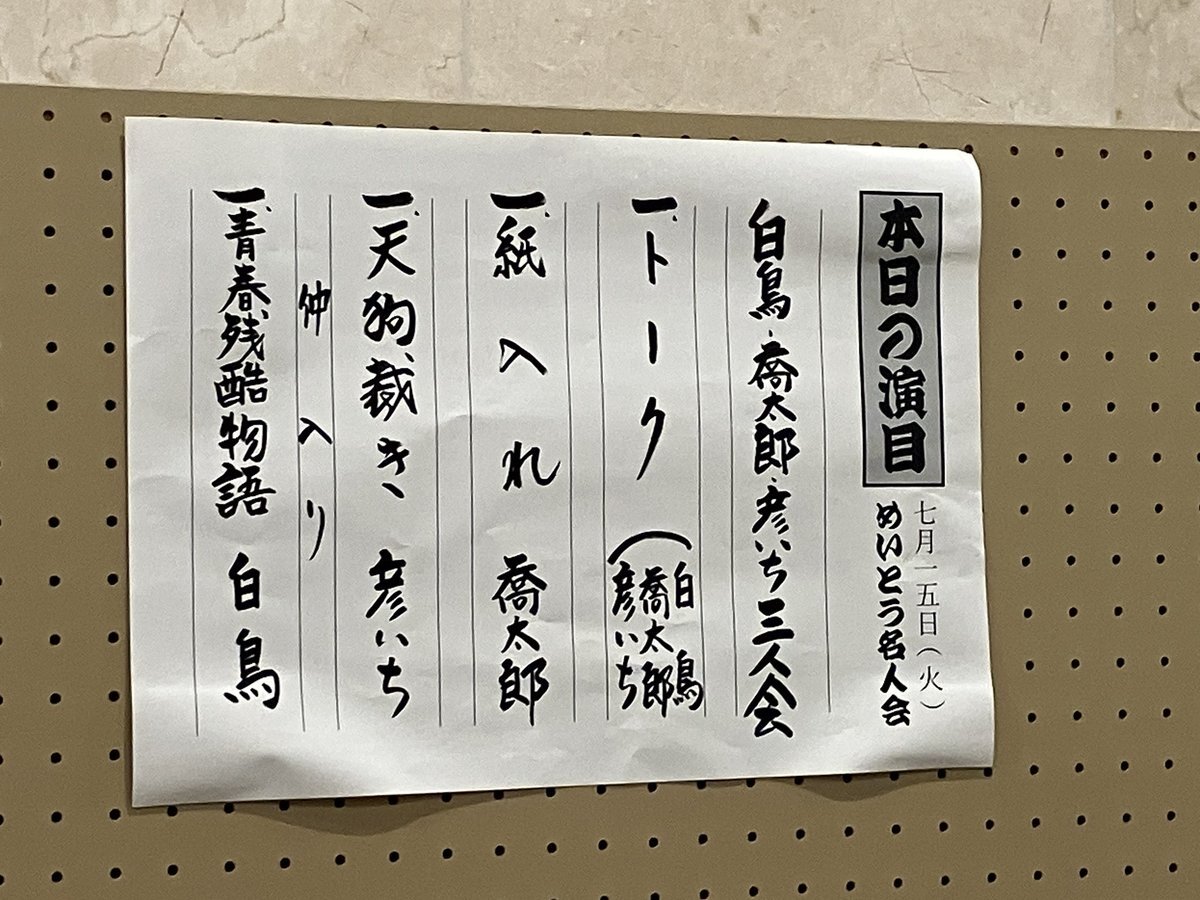 本日の演目
七月一五日(火)
めいとう名人会
白鳥・喬太郎・彦いち三人会
一、トーク(白鳥
喬太郎
彦いち
一、紙入れ 喬太郎
一、天狗裁き 彦いち
仲入り
一、青春残酷物語 白鳥